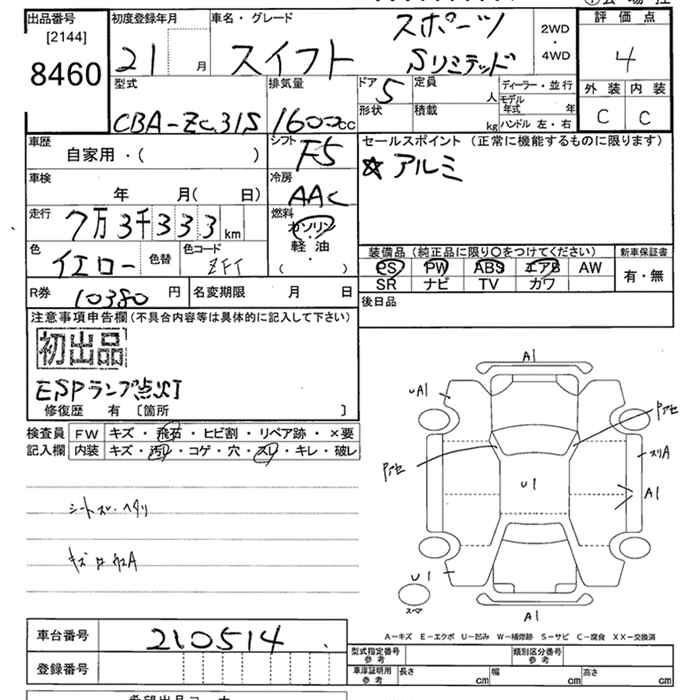 出品番号 [2144] 8460
初度登録年月 21 月
車名・グレード スイフト スポーツ Sリミテッド
2WD・4WD
評価点 4
外装 内装
C C
型式 CBA-ZC31S
排気量 1600cc
ドア 5
形状
定員 人
積載 kg
ディーラー・並行
モデル年式 年
ハンドル 左・右
車歴 自家用・( )
シフト F5
セールスポイント (正常に機能するものに限ります)
☆アルミ
車検 年 月( 日)
冷房 AAC
走行 7万3千333km
燃料 ガソリン
軽油
・( )
色 イエロー 色替
色コード ZFT
装備品(純正品に限り〇をつけてください)
PS PW ABS エアB AW
SR ナビ TV カワ
新車保証書 有・無
R券 10380円
名変期限 月 日
後日品
注意事項申告欄(不具合内容等は具体的に記入して下さい)
初出品
ESPランプ点灯
修復歴 有 [箇所 ]
検査員記入欄
FW キズ・飛石・ヒビ割・リペア跡・×要
内装 キズ・汚レ・コゲ・穴・スレ・キレ・破レ
シートスレ・ヘタリ
A1
UA1
Pアセ
Pアセ
スリA
U1
A1
U1
スペア
A1
A-キズ E-エクボ U-凹み W-補修跡 S-サビ C-腐食 XX-交換済
車台番号 210514
登録番号
型式指定番号 参考
類別区分番号 参考
車庫証明欄 参考
長さ cm 幅 cm 高さ cm